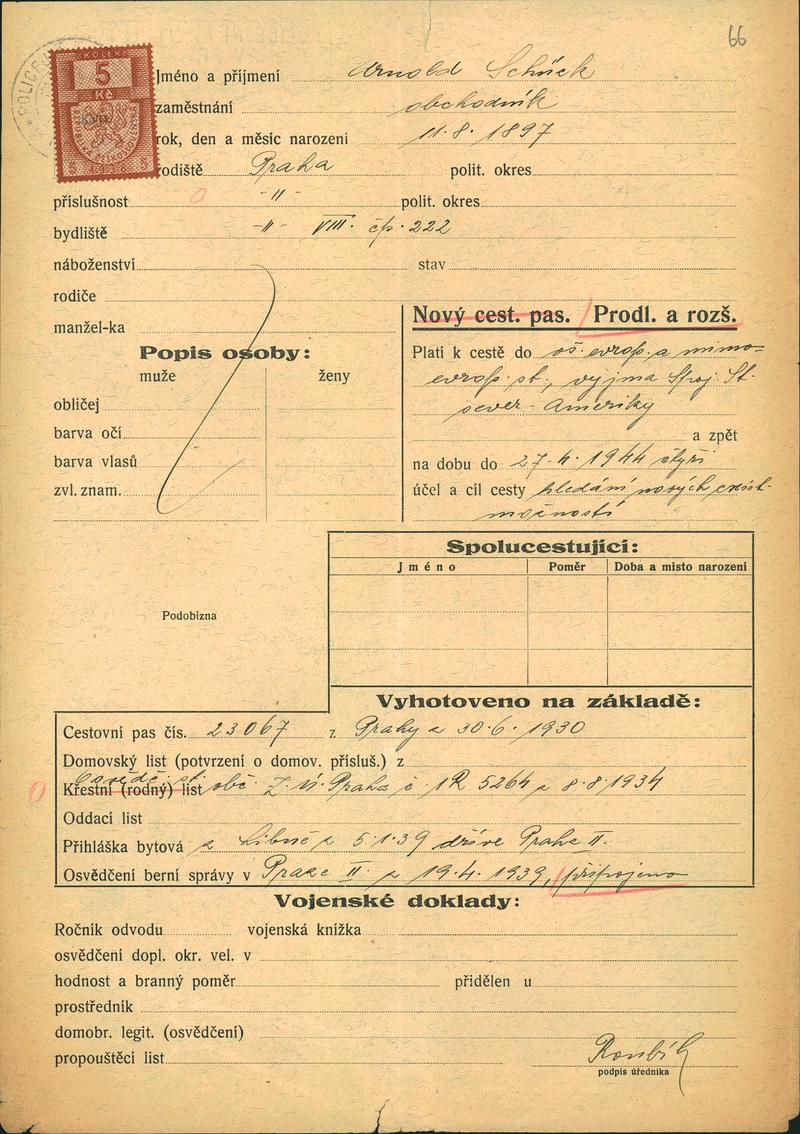 66
KOLEK
5
Kč
Jméno a příjmení Arnold Schück
zaměstnání obchodník
rok, den a měsíc narození 11.8.1897
rodiště Praha polit. okres
příslušnost -"- polit. okres
bydliště -"- VIII. čp. 222
náboženství stav
rodiče
manžel-ka
Nový cest. pas. Prodl. a rozš.
Popis osoby:
muže ženy
obličej
barva očí
barva vlasů
zvl. znam.
Platí k cestě do evrop. a mimo-
evrop. st., vyjma Spoj. St.
sever. Ameriky
a zpět
na dobu do 27.4.1944 čtyři
účel a cíl cesty hledání nových exist.
možností
Spolucestující:
Jméno Poměr Doba a místo narození
Podobizna
Vyhotoveno na základě:
Cestovní pas čís. 23067 z Prahy z 30.6.1930
Domovský list (potvrzení o domov. přísluš.) z
Osvědč. st.
Křestní (rodný) list obč. Z. ú. Praha č. 1R 5264 z 8.8.1934
Oddací list
Přihláška bytová z Libně z 5.1.39 dříve Praha II.
Osvědčení berní správy v Praze II. z 19.4.1939, připojeno
Vojenské doklady:
Ročník odvodu vojenská knížka
osvědčení dopl. okr. vel. v
hodnost a branný poměr přidělen u
prostředník
domobr. legit. (osvědčení)
propouštěcí list
podpis úředníka